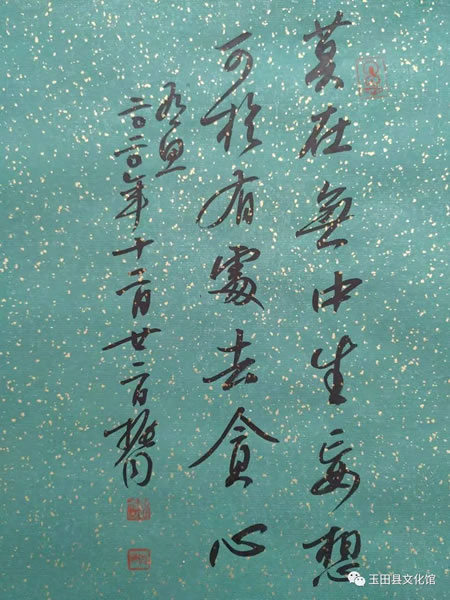 莫在無中生妄想
可於有處去貪心
二〇二〇年十二月廿二日
玉田县文化馆